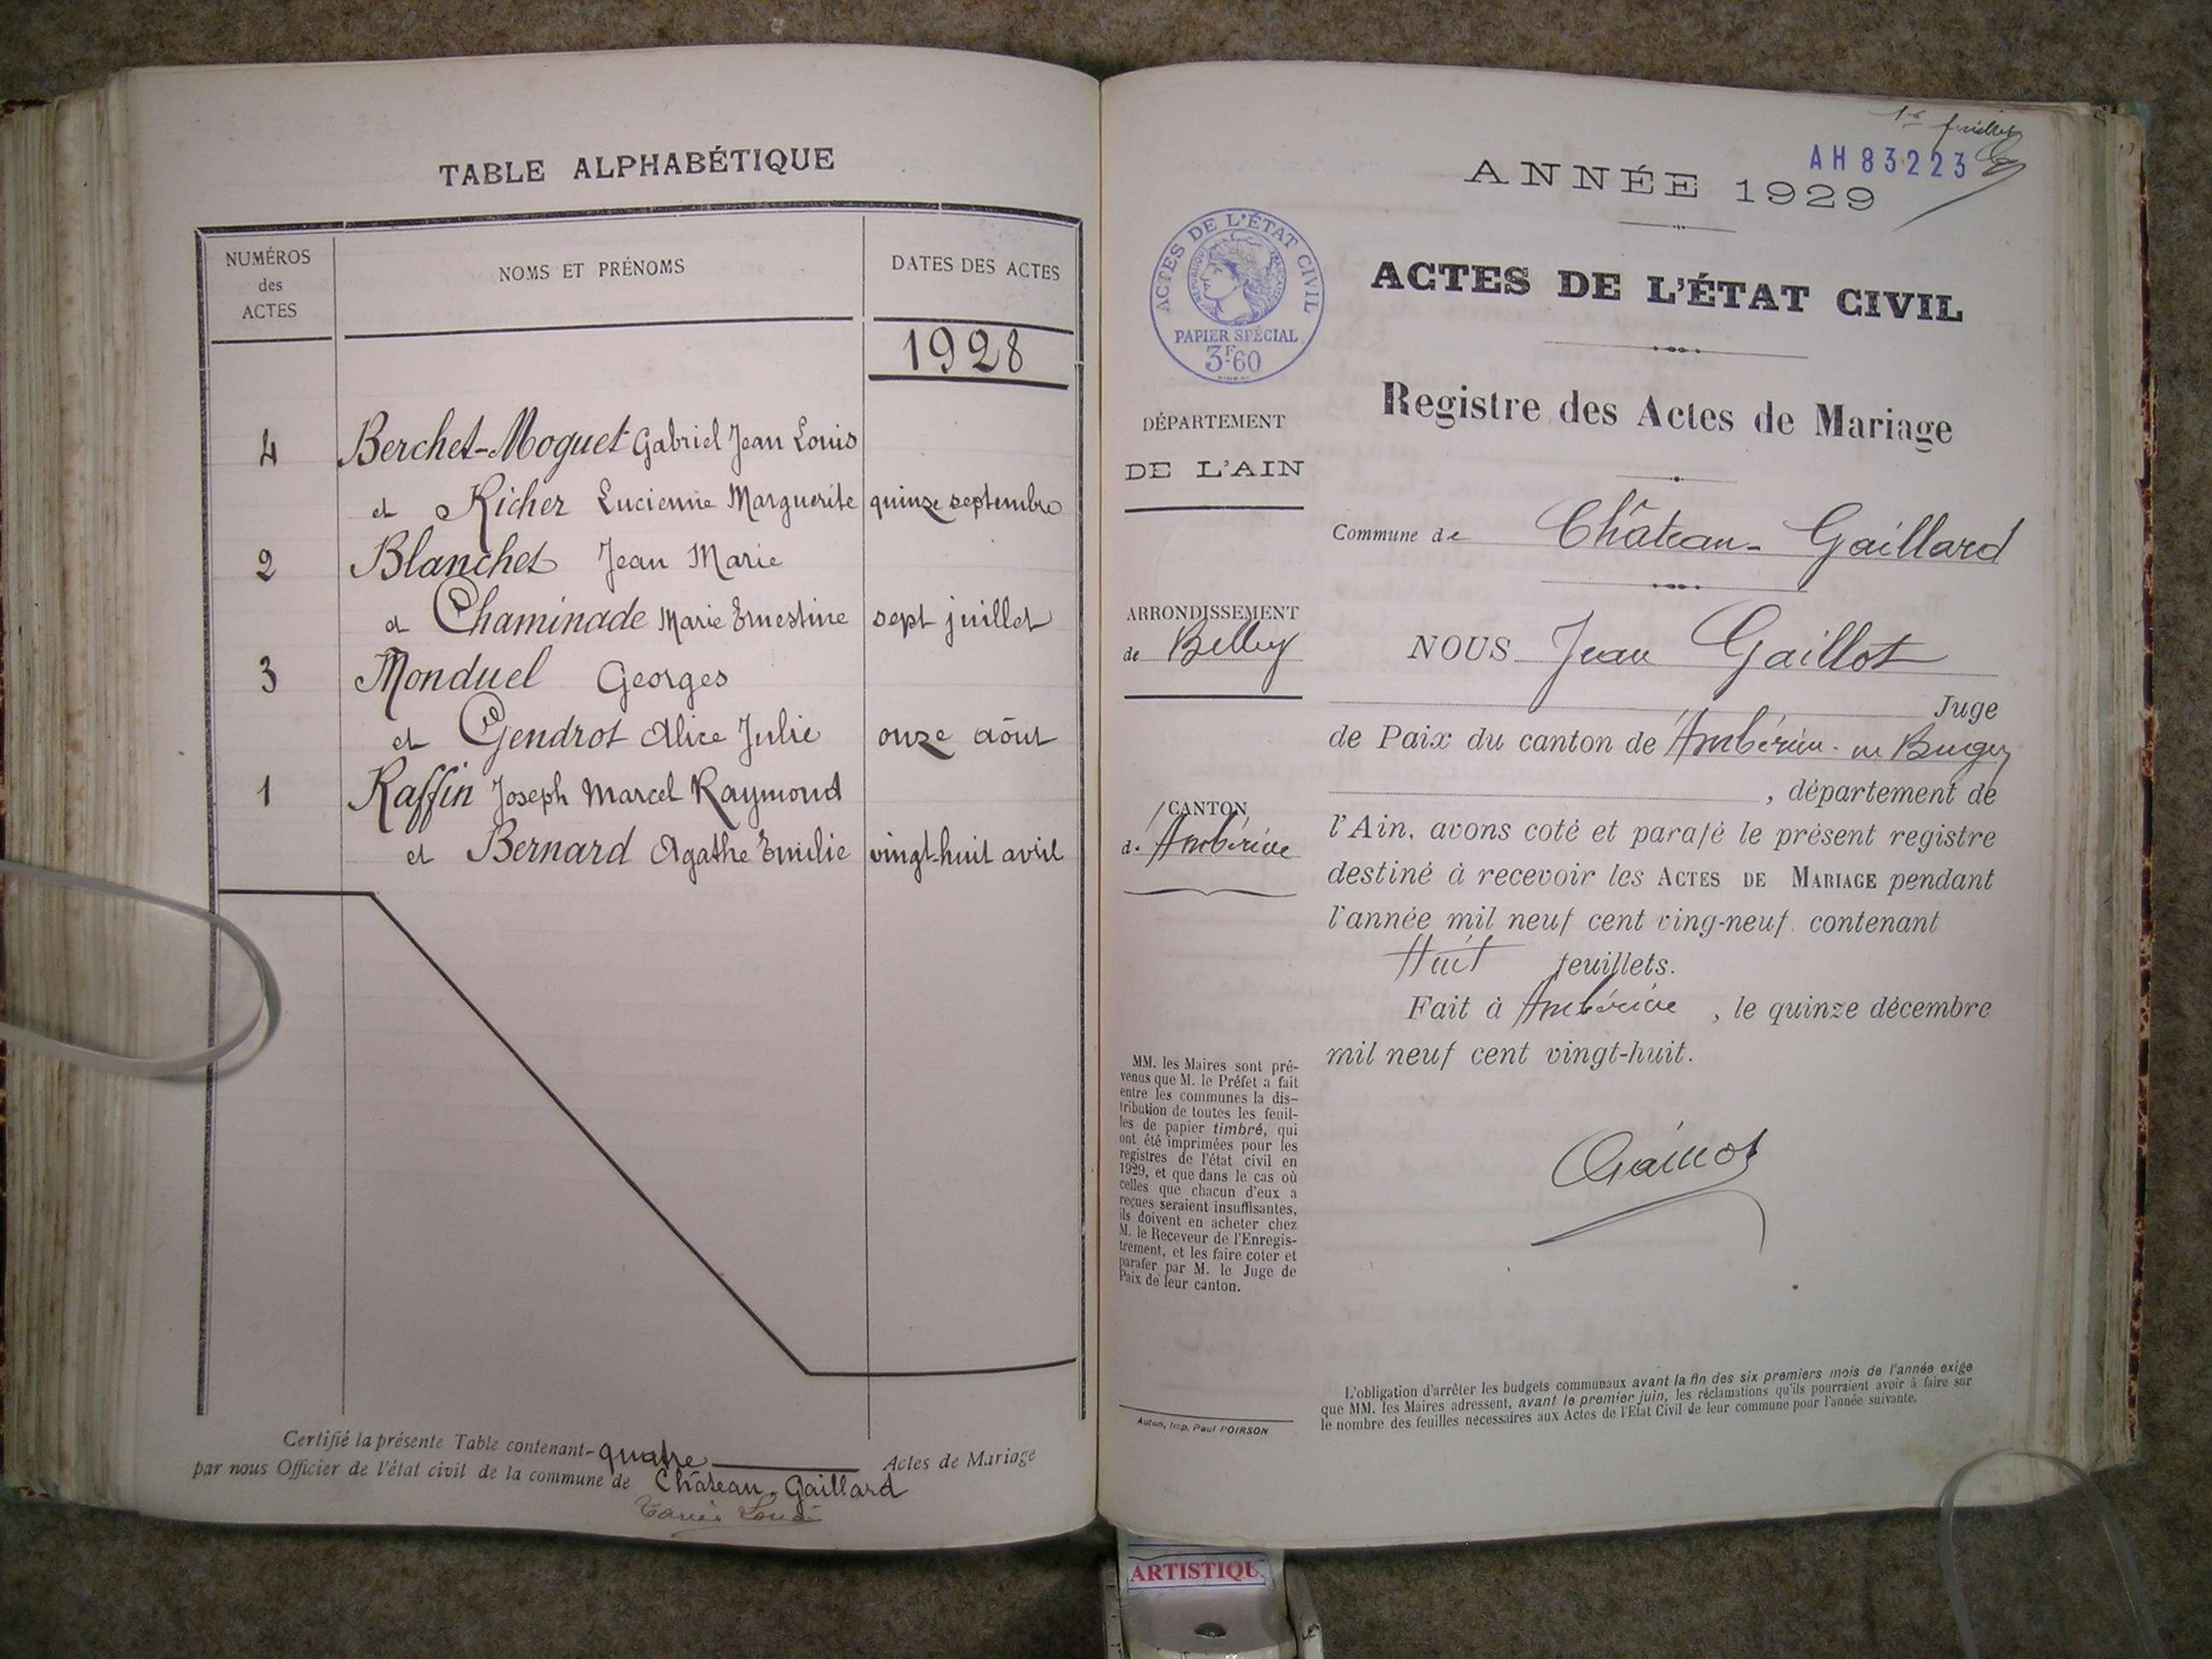 TABLE ALPHABÉTIQUE
NUMÉROS
des
ACTES
NOMS ET PRÉNOMS
DATES DES ACTES
1928
4 Berchet-Moguet Gabriel Jean Louis
et Richer Lucienne Marguerite quinze septembre
2 Blanchet Jean Marie
et Chaminade Marie Ernestine sept juillet
3 Monduel Georges
et Gendrot Alice Julie onze août
1 Raffin Joseph Marcel Raymond
et Bernard Agathe Emilie vingt-huit avril
Certifié la présente Table contenant quatre Actes de Mariage
par nous Officier de l'état civil de la commune de Château-Gaillard
1er feuillet
AH 83223
ANNÉE 1929
ACTES DE L'ÉTAT CIVIL
RÉPUBLIQUE FRANÇAISE
PAPIER SPÉCIAL
3F60
ACTES DE L'ÉTAT CIVIL
Registre des Actes de Mariage
DÉPARTEMENT
DE L'AIN
Commune de Château-Gaillard
ARRONDISSEMENT
de Belley
NOUS Jean Gaillot
Juge
de Paix du canton de Ambérieu-en-Bugey
, département de
CANTON
d'Ambérieu
l'Ain, avons coté et parafé le présent registre
destiné à recevoir les ACTES DE MARIAGE pendant
l'année mil neuf cent ving-neuf contenant
Huit feuillets.
Fait à Ambérieu, le quinze décembre
mil neuf cent vingt-huit.
Gaillot
MM. les Maires sont pré-
venus que M. le Préfet a fait
entre les communes la dis-
tribution de toutes les feuil-
les de papier timbré, qui
ont été imprimées pour les
registres de l'état civil en
1929, et que dans le cas où
celles que chacun d'eux a
reçues seraient insuffisantes,
ils doivent en acheter chez
M. le Receveur de l'Enregis-
trement, et les faire coter et
parafer par M. le Juge de
Paix de leur canton.
Autun, Imp. Paul POIRSON
L'obligation d'arrêter les budgets communaux avant la fin des six premiers mois de l'année exige
que MM. les Maires adressent, avant le premier juin, les réclamations qu'ils pourraient avoir à faire sur
le nombre des feuilles nécessaires aux Actes de l'Etat Civil de leur commune pour l'année suivante.
ARTISTIQU